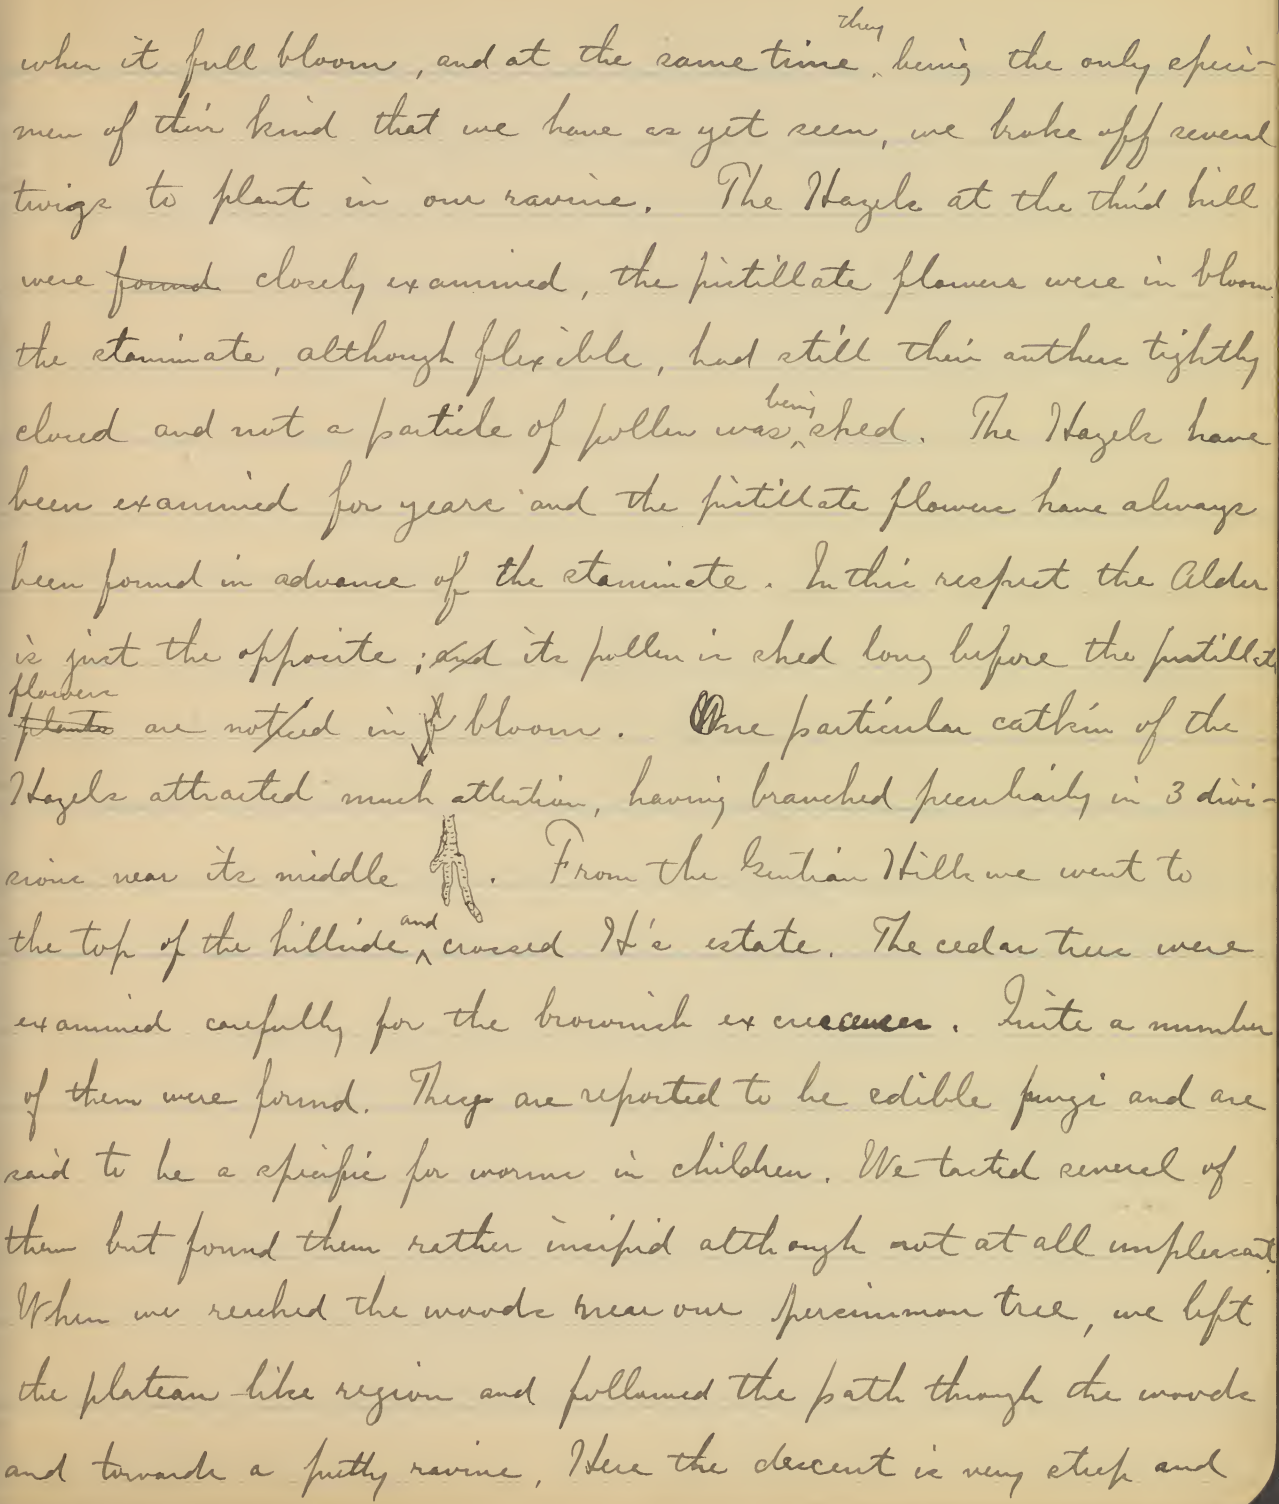 when it full bloom, and at the same time they being the only speci-
men of their kind that we have as yet seen, we broke off several
twigs to plant in our ravine. The Hazels at the third hill
were found closely examined, the pistillate flowers were in bloom
the staminate, although flexible, had still their anthers tightly
closed and not a particle of pollen was being shed. The Hazels have
been examined for years and the pistillate flowers have always
been found in advance of the staminate. In this respect the Alder
is just the opposite; and its pollen is shed long before the pistillate
flowers
plants are noticed in bloom. One particular catkin of the
Hazels attracted much attention, having branched peculiarly in 3 divi-
sions near its middle. From the Gentian Hills we went to
the top of the hillside and crossed H's estate. The cedar trees were
examined carefully for the brownish excrescences. Quite a number
of them were found. They are reported to be edible fungi and are
said to be a specific for worms in children. We tasted several of
them but found them rather insipid although not at all unpleasant.
When we reached the woods near our persimmon tree, we left
the plateau-like region and followed the path through the woods
and towards a pretty ravine. Here the descent is very steep and